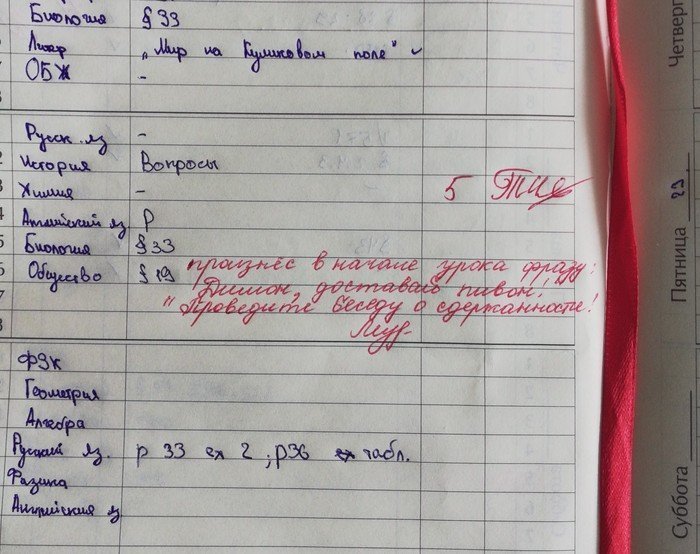 Биология § 33
Литер „Мир на Куликовом поле"
ОБЖ -
Русск. яз -
История Вопросы
Химия - 5
Английский яз P
Биология § 33
Общество § 19 произнёс в начале урока фразу:
„Димон, доставай пивон!"
Проведите беседу о сдержанности!
ФЗК
Геометрия
Алгебра
Русский яз. p 33 ex 2 ; p36 ex табл.
Физика
Английский яз
Четверг
Пятница 29
Суббота